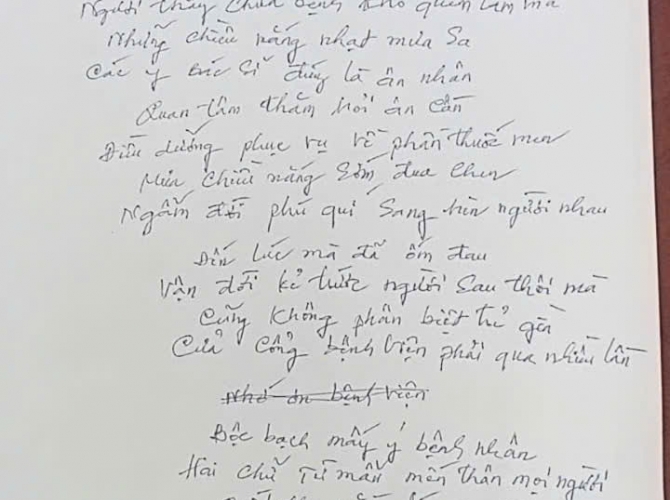 Người thầy chữa bệnh cho quên làm mà
Những chiều nắng nhạt mưa sa
Các y bác sĩ đúng là ân nhân
Quan tâm thăm hỏi ân cần
Điều dưỡng phục vụ về phần thuốc men
Mưa chiều nắng sớm đua chen
Ngẫm đời phú quí sang hèn người nhau
Đến lúc mà đã ốm đau
Vận đời kẻ trước người sau thôi mà
Cũng không phân biệt trẻ già
Cửa cổng bệnh viện phải qua nhiều lần
Nhớ ơn bệnh viện
Bộc bạch mấy ý bệnh nhân
Hai chữ Từ mẫu mến thân mọi người